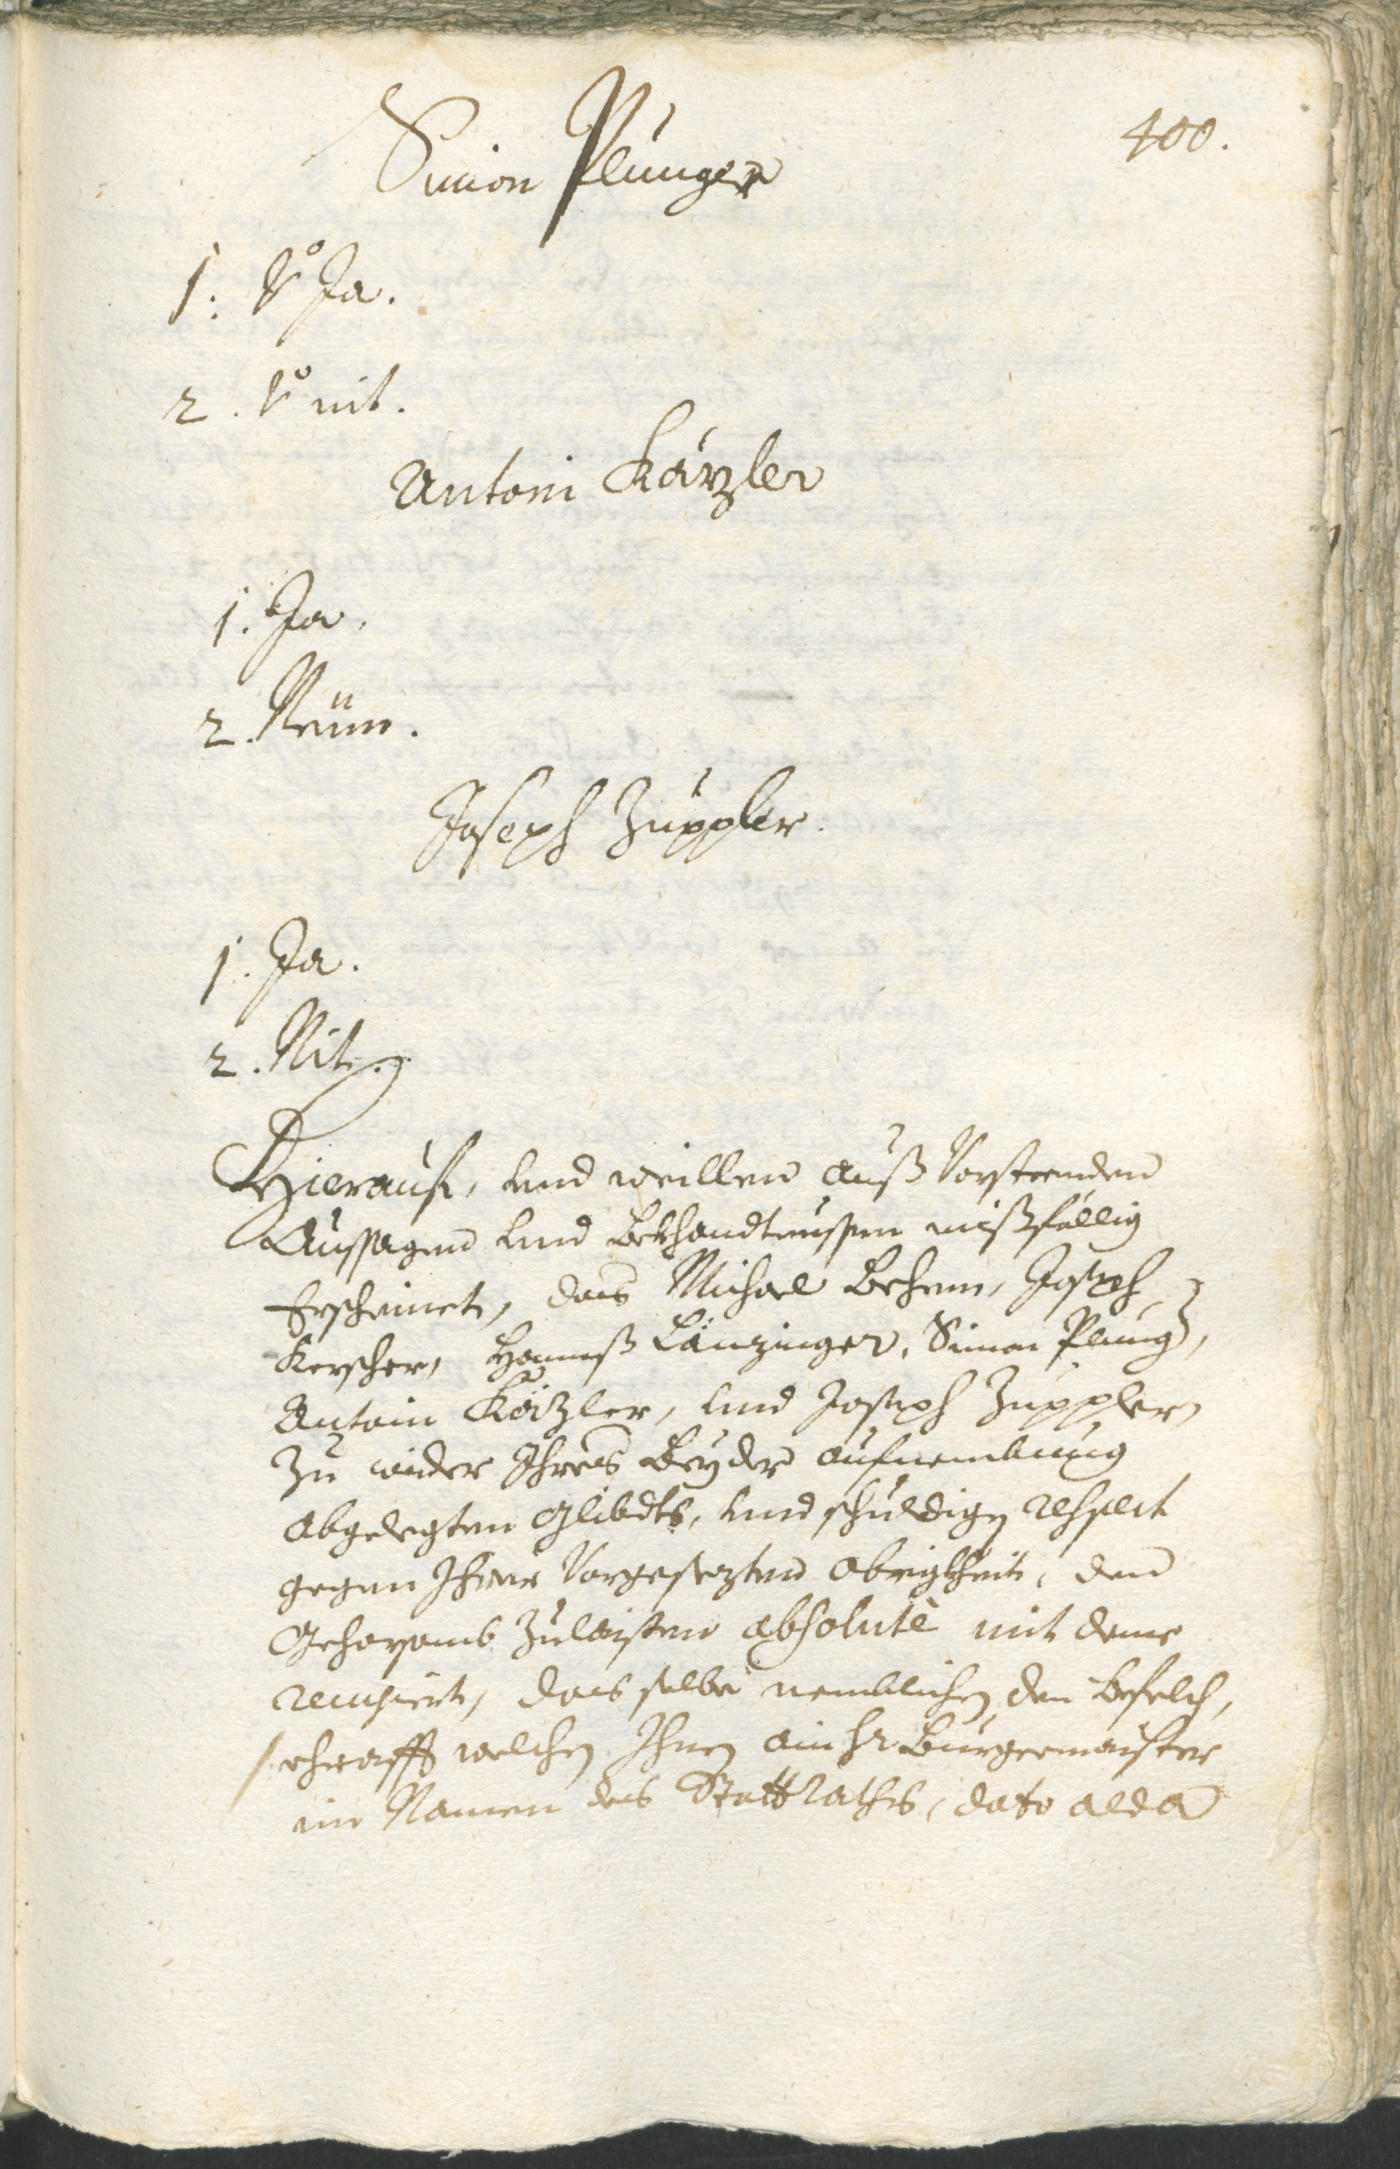 400.
Simon Plunger
1. Ro Ja.
2. Ro nit.
Antoni Kärzler
1. Ja.
2. Nein.
Joseph Zuppler.
1. Ja.
2. Nit.
Hierauf, und weillen auß Vorsteenden
Aussagen und Bekhandtnussen mißfällig
Erscheinet, das Michael Behem, Joseph
Kerscher, Hannß Länzinger, Simon Plung,
Antoin Kärzler, und Joseph Zuppler,
Zu wider Ihres Beyder aufnembung
abgelegten Glibdts, und schuldigen respect
gegen Ihrer Vorgesezten Obrigkheit, den
Gehorsamb Zulaisten absolutè mit deme
recusiert, das selbe nemblichen den Befelch,
welchen Ihnen ain hr Burgermaister
im Namen des StattRaths, dato alda